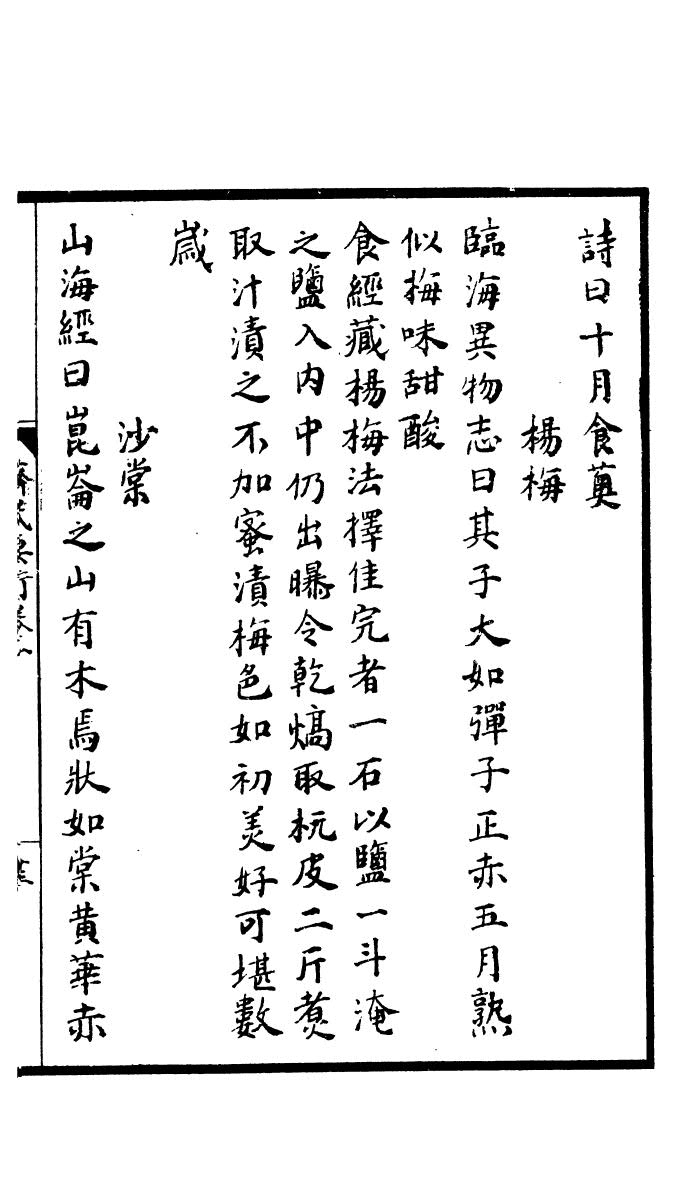 詩曰十月食薁
楊梅
臨海異物志曰其子大如彈子正赤五月熟
似梅味甜酸
食經藏楊梅法擇佳完者一石以鹽一斗淹
之鹽入內中仍出曝令乾熇取杬皮二斤煑
取汁漬之不加蜜漬梅色如初美好可堪數
嵗
沙棠
山海經曰崑崙之山有木焉狀如棠黃華赤